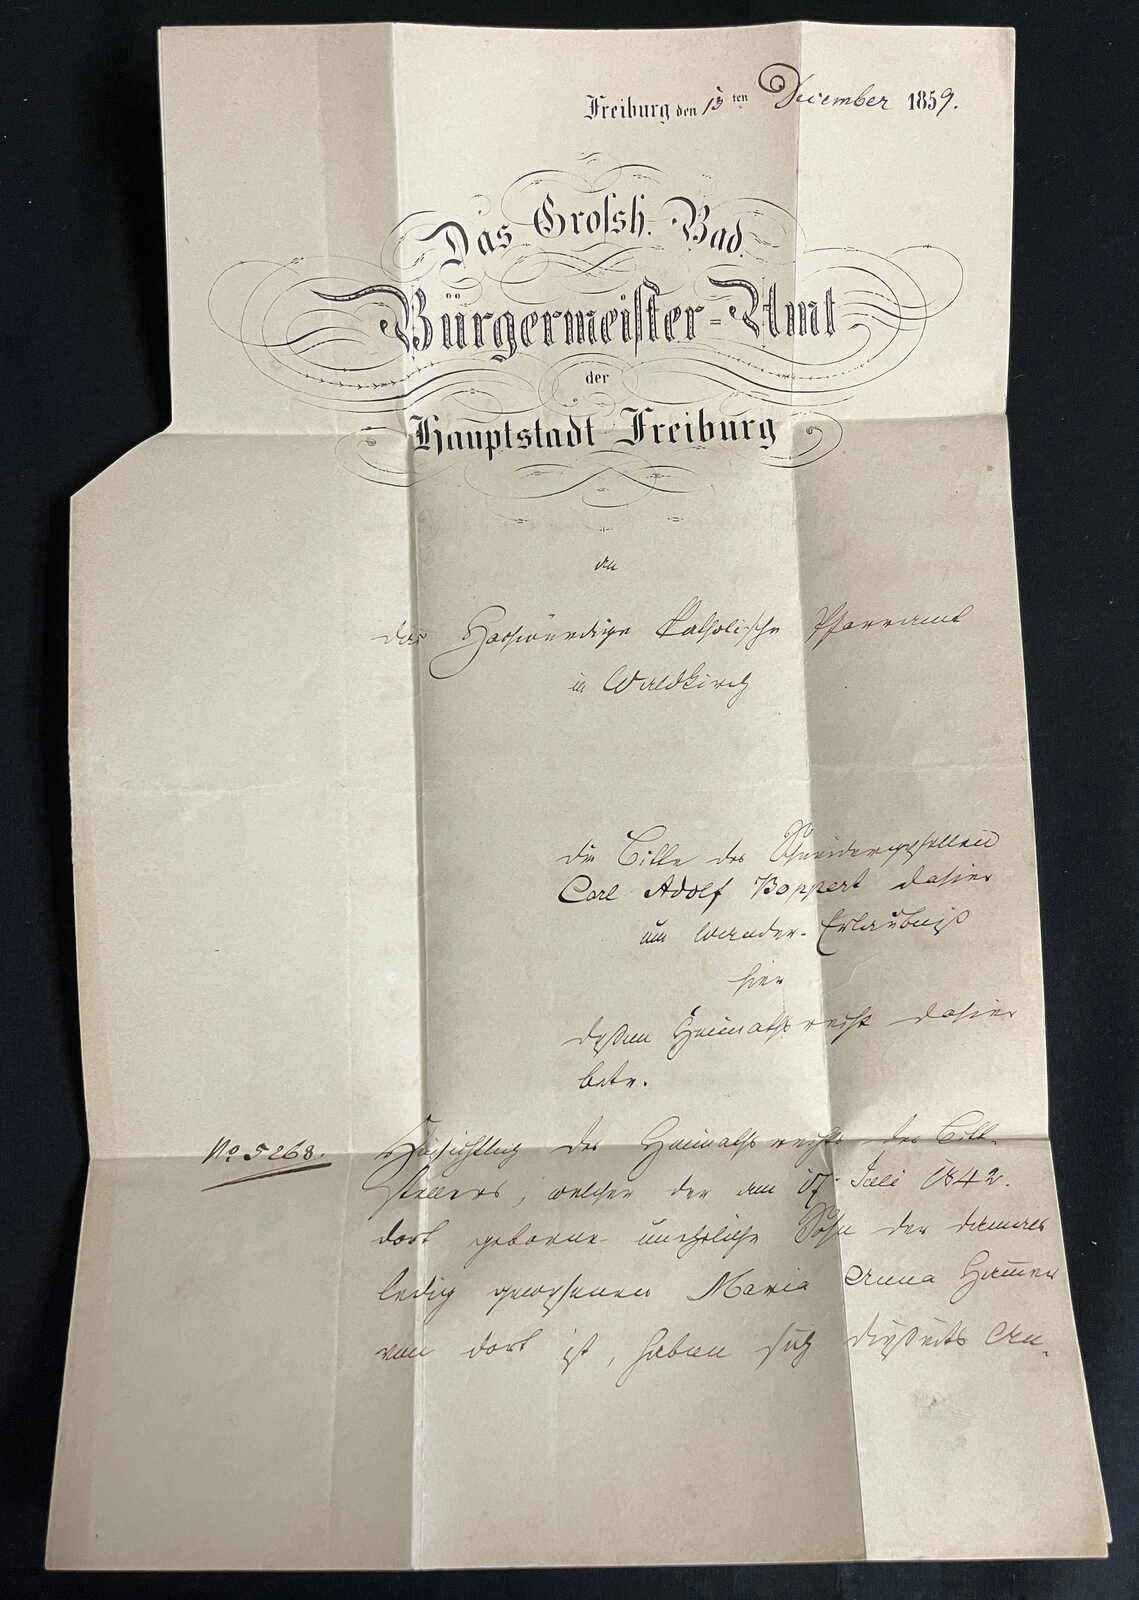 Freiburg den 13 ten December 1859.
Das Grossh. Bad.
Bürgermeister-Amt
der
Hauptstadt Freiburg
an
das Hochwürdige Katholische Pfarramt
in Waldkirch
die Bitte des Schneidergesellen
Carl Adolf Boppert dahier
um Wander-Erlaubniß
hier
deßen Heimathsrecht dahier
betr.
No 5268.
Hinsichtlich des Heimathsrechts des Bitt-
stellers, welcher der am 17. Juli 1842.
dort geborne uneheliche Sohn der damals
ledig gewesenen Maria Anna
von dort ist, haben sich dießseits An-